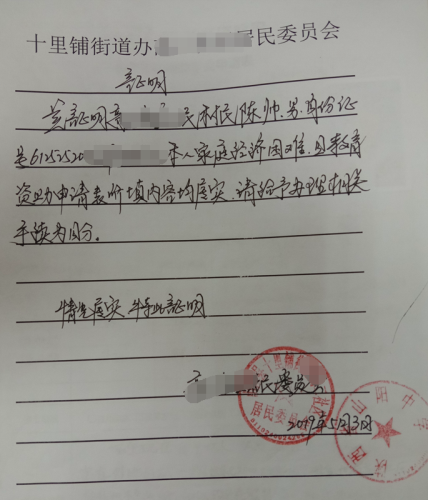 十里铺街道办 居民委员会
证明
兹证明 民村民陈帅、男、身份证
号61252520 本人家庭经济困难，且教育
资助申请表所填内容均属实，请给予办理相关
手续为盼。
情况属实 特此证明
民委员
居民委员
2019年5月3日
山阳中学